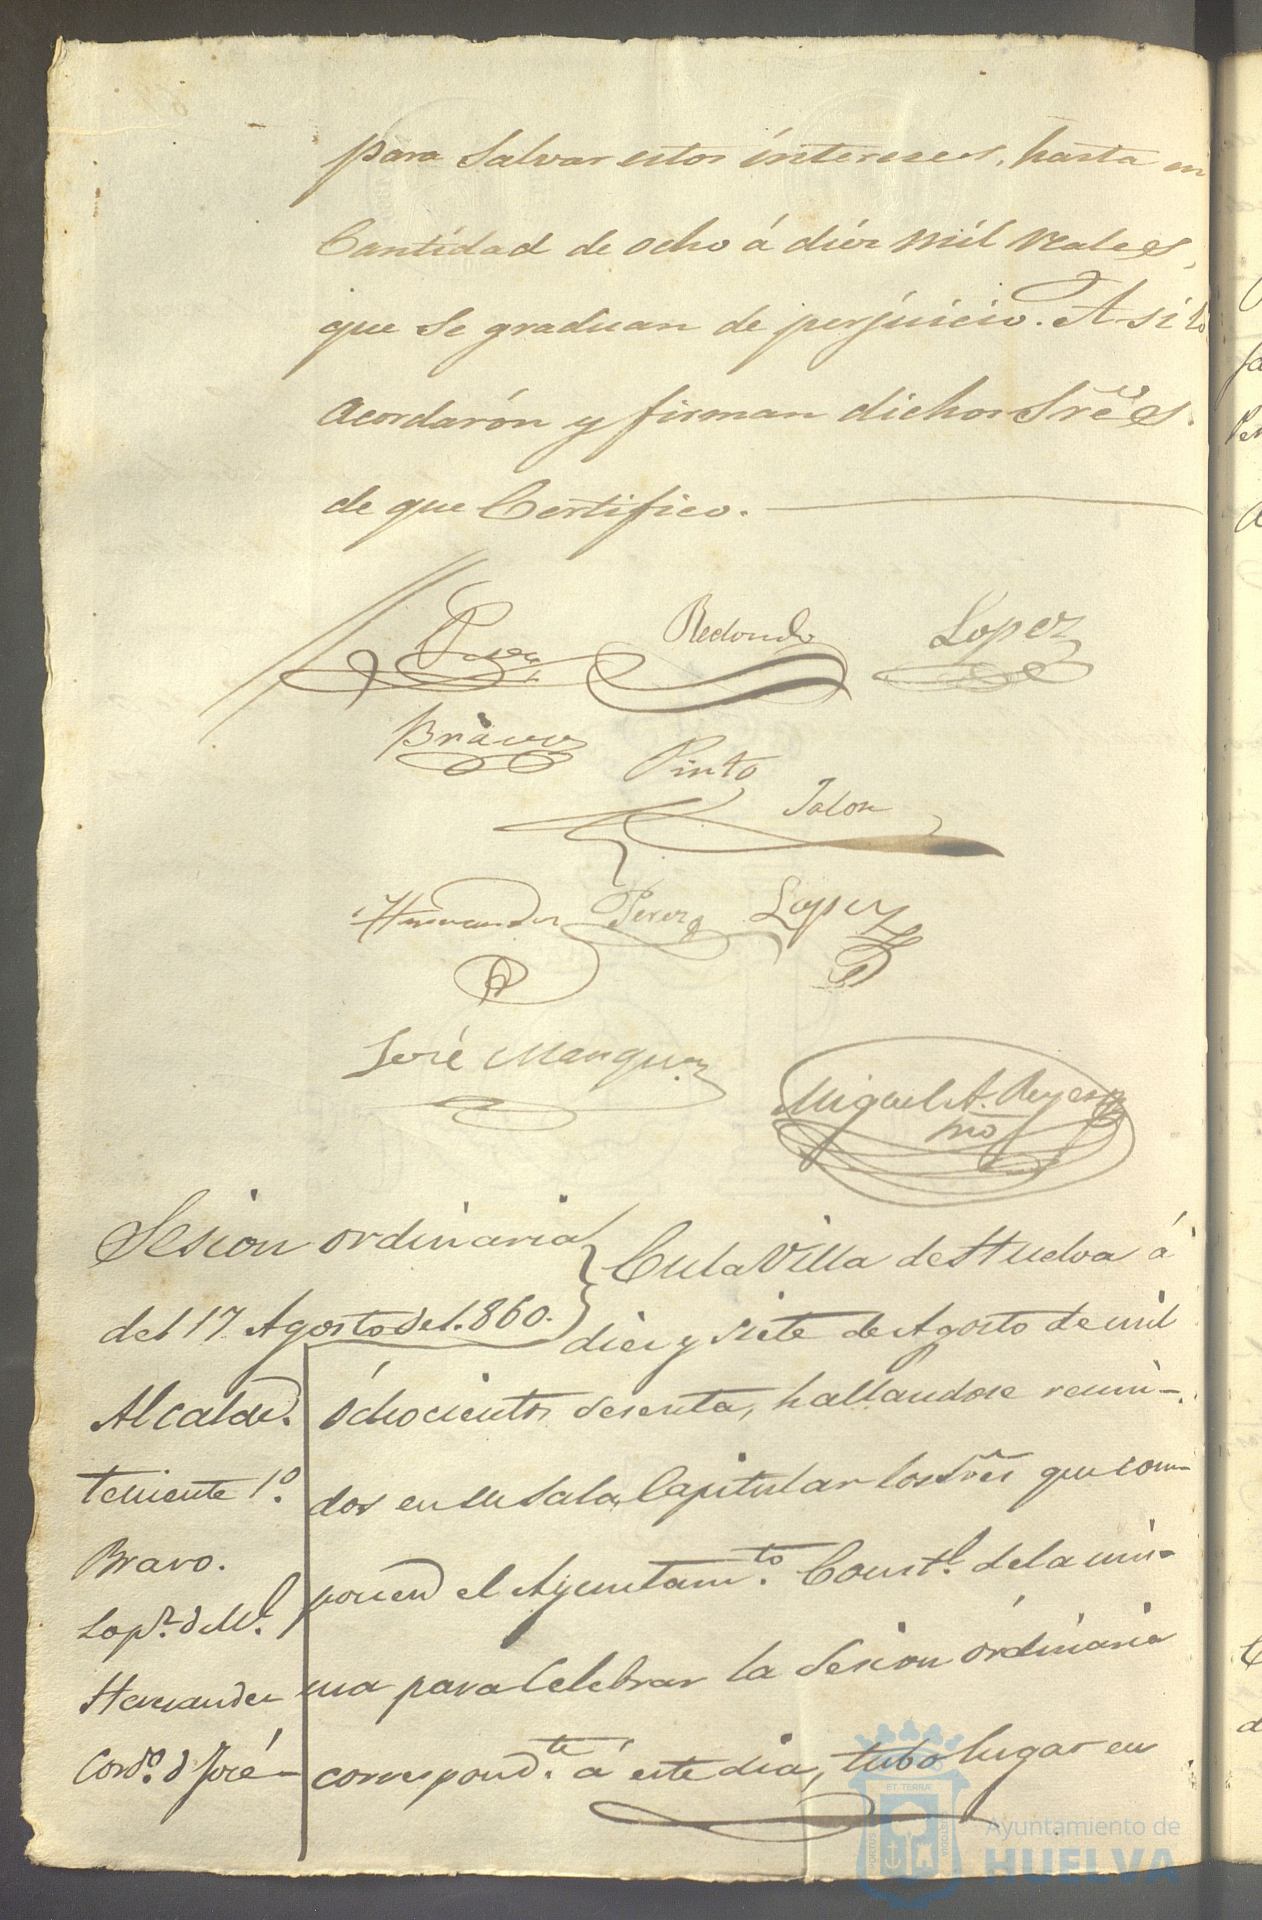 para salvar estos intereses, hasta en
Cantidad de ocho á diez mil reales,
que se graduan de perjuicio. Asi lo
Acordarón y firman dichos Sres
de que Certifico.
Redondo Lopez
Bravo
Pinto
Jalon
Hernandez Perez Lopez
José Marquez
Miguel A. Reyes
Srio
Sesion ordinaria
del 17 Agosto del.860.
En la Villa de Huelva á
diez y siete de Agosto de mil
Ochocientos sesenta, hallandose reuni-
dos en su Sala Capitular los Sres que com-
ponen el Ayuntamto. Constl. de la mis-
ma para Celebrar la Sesion órdinaria
correspondte. á este dia, tubo lugar en
Alcalde.
Teniente 1o.
Bravo.
Lopz. d Ml.
Hernandez
Cordo. d José
ET TERRÆ
PORTUS
CUSTODIA
Ayuntamiento de
HUELVA